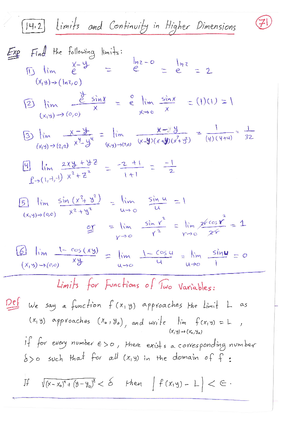 14.2 Limits and Continuity in Higher Dimensions 71
Exp Find the following limits:
1 lim e^(x-y) = e^(ln2-0) = e^(ln2) = 2
(x,y)→(ln2,0)
2 lim e^y sinx / x = e^0 lim sinx / x = (1)(1) = 1
(x,y)→(0,0) x→0
3 lim (x-y) / (x^4-y^4) = lim (x-y) / ((x-y)(x+y)(x²+y²)) = 1 / ((4)(4+4)) = 1/32
4 lim (2xy + yz) / (x²+z²) = (-2+1) / (1+1) = -1/2
5 lim sin(x²+y²) / (x²+y²) = lim sin u / u = 1
(x,y)→(0,0) u→0
or = lim sin r² / r² = lim 2r cos r² / 2r = 1
r→0 r→0
6 lim (1-cos(xy)) / xy = lim (1-cos u) / u = lim sin u / 1 = 0
(x,y)→(0,0) u→0 u→0
Limits for functions of Two Variables:
Def We say a function f(x,y) approaches the limit L as
(x,y) approaches (x₀,y₀), and write lim f(x,y) = L,
(x,y)→(x₀,y₀)
if for every number ϵ>0, there exists a corresponding number
δ>0 such that for all (x,y) in the domain of f:
If √((x-x₀)²+(y-y₀)²) < δ then |f(x,y) - L| < ϵ.